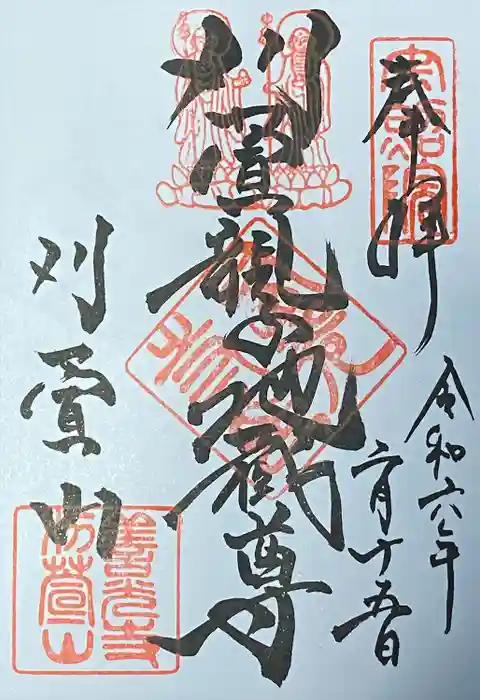 奉拝
令和六年
月十五日
刈萱親子地蔵尊
刈萱山
苅萱山